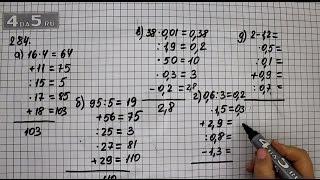 4DA5.RU
284.
а) 16·4=64
+11=75
:15=5
·17=85
+18=103
103
б) 95:5=19
+56=75
:25=3
·27=81
+29=110
110
в) 38·0,01=0,38
:19=0,2
·50=10
·0,3=3
-0,2=2,8
2,8
г) 0,6:3=0,2
·1,5=0,3
+2,9=
:0,8=
-1,3=
д) 2-1,2=
·0,5=
:0,1=
+0,9=
:0,7=